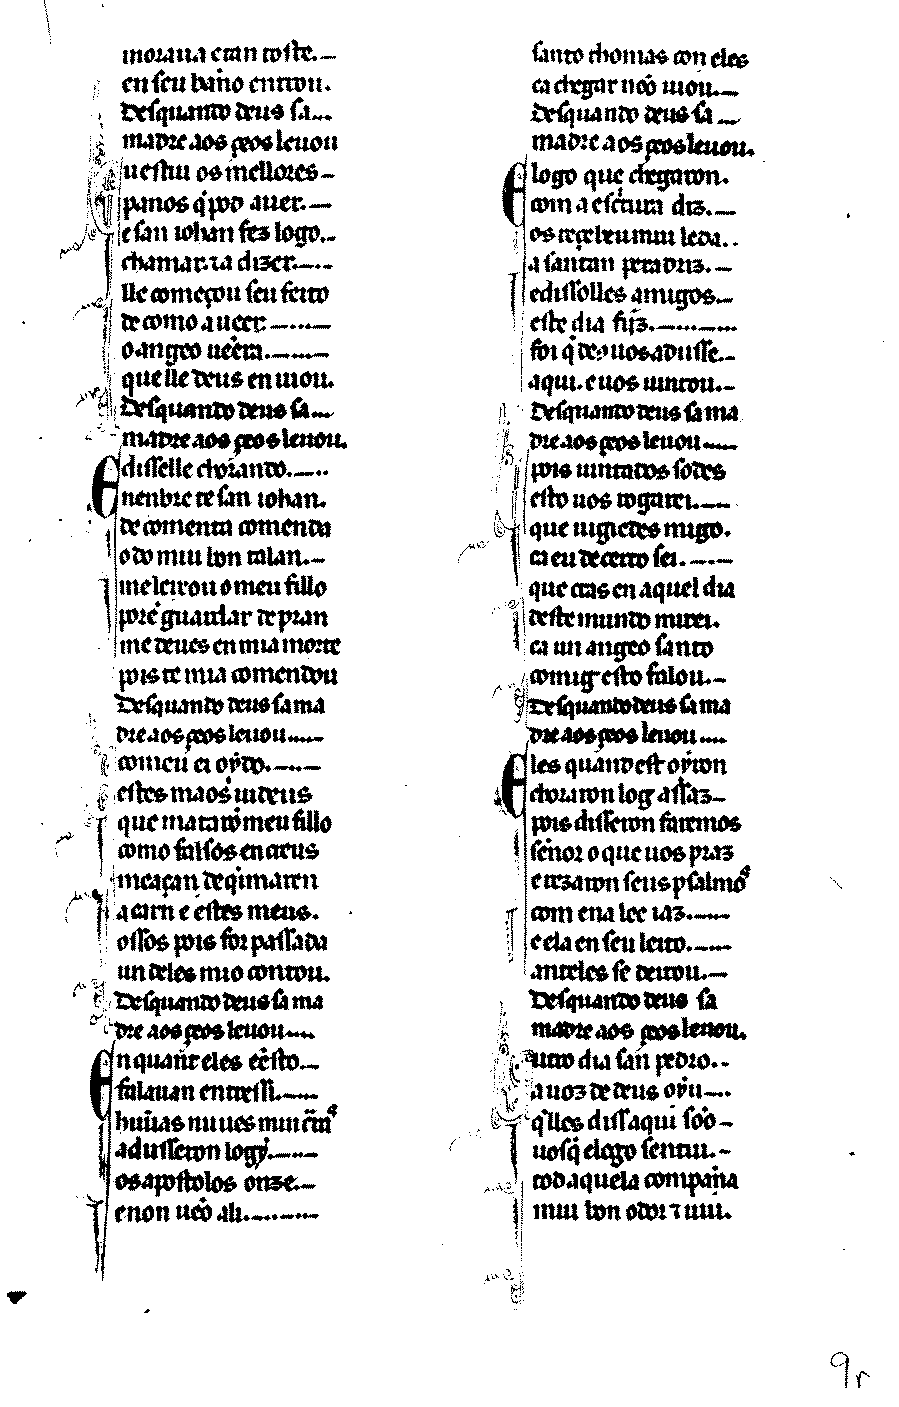 moraua eran toste.—
en seu baño entrou.
Desquando deus sa...
madre aos çeos leuou
uestiu os mellores—
panos q̇ pod auer.—
e san iohan fez logo..
chamar. ⁊a dizer.—..
lle começou seu feito
de como a ueer. —..—
o angeo uẽera.—..—
que lle deus enuiou.
Desquando deus sa...
madre aos çeos leuou.
E disselle chorando.—..
nenbre te san iohan.
de comenta comenda
o do miu bon talan.—
me leixou o meu fillo
porẽ guardar de pran
me deues en mia morte
pois te mia comendou
Desquando deus sa ma
dre aos çeos leuou....—
comeu ei oydo.—..—
estes maos iudeus
que mataro meu fillo
como falsos encreus
meaçan de q̇imaren
a carn e estes meus.
ossos pois for passada
un deles mio contou.
Desquando deus sa ma
dre aos çeos leuou....
E n quant eles esto..—
falauan entressi.—..—
huũas nuues mui crã
adusseron logy.—..—
os apostolos onze.—
e non uẽo ali.—..—..—
santo thomas con eles
ca chegar nõ uiou.—
Desquando deus sa ...
madre aos çeos leuou.
E logo que chegaron.
com a escritura diz.—
os reçebeu mui leda..
a santan peradriz.—
e dissolles amigos—
este dia fiz.—..—..—
foi q̇ de9 uos adusse.—
aqui. e uos iuntou.—
Desquando deus sa ma
dre aos çeos leuou....—
pois iuntados sodes
esto uos rogarei.—..—
que uigiedes migo.
ca eu de certo sei.—..—
que cras en aquel dia
deste mundo mirrei.
ca un angeo santo
comig esto falou.—
Desquando deus sa ma
dre aos çeos leuou....
E les quand est oyron
choraron log assaz—
pois disseron faremos
señor o que uos praz
e rezaron seus psalmos
com ena lee iaz.—..—
e ela en seu leito.—..—
ant eles se deitou.—
Desquando deus sa
madre aos çeos leuou.
utro dia san pedro.—
a uoz de deus oyu—..
q̇ lles diss aqui sõo—
uosq̇ e logo sentiu.—
tod aquela compaña
miu bon odor ⁊ uiu.
9r